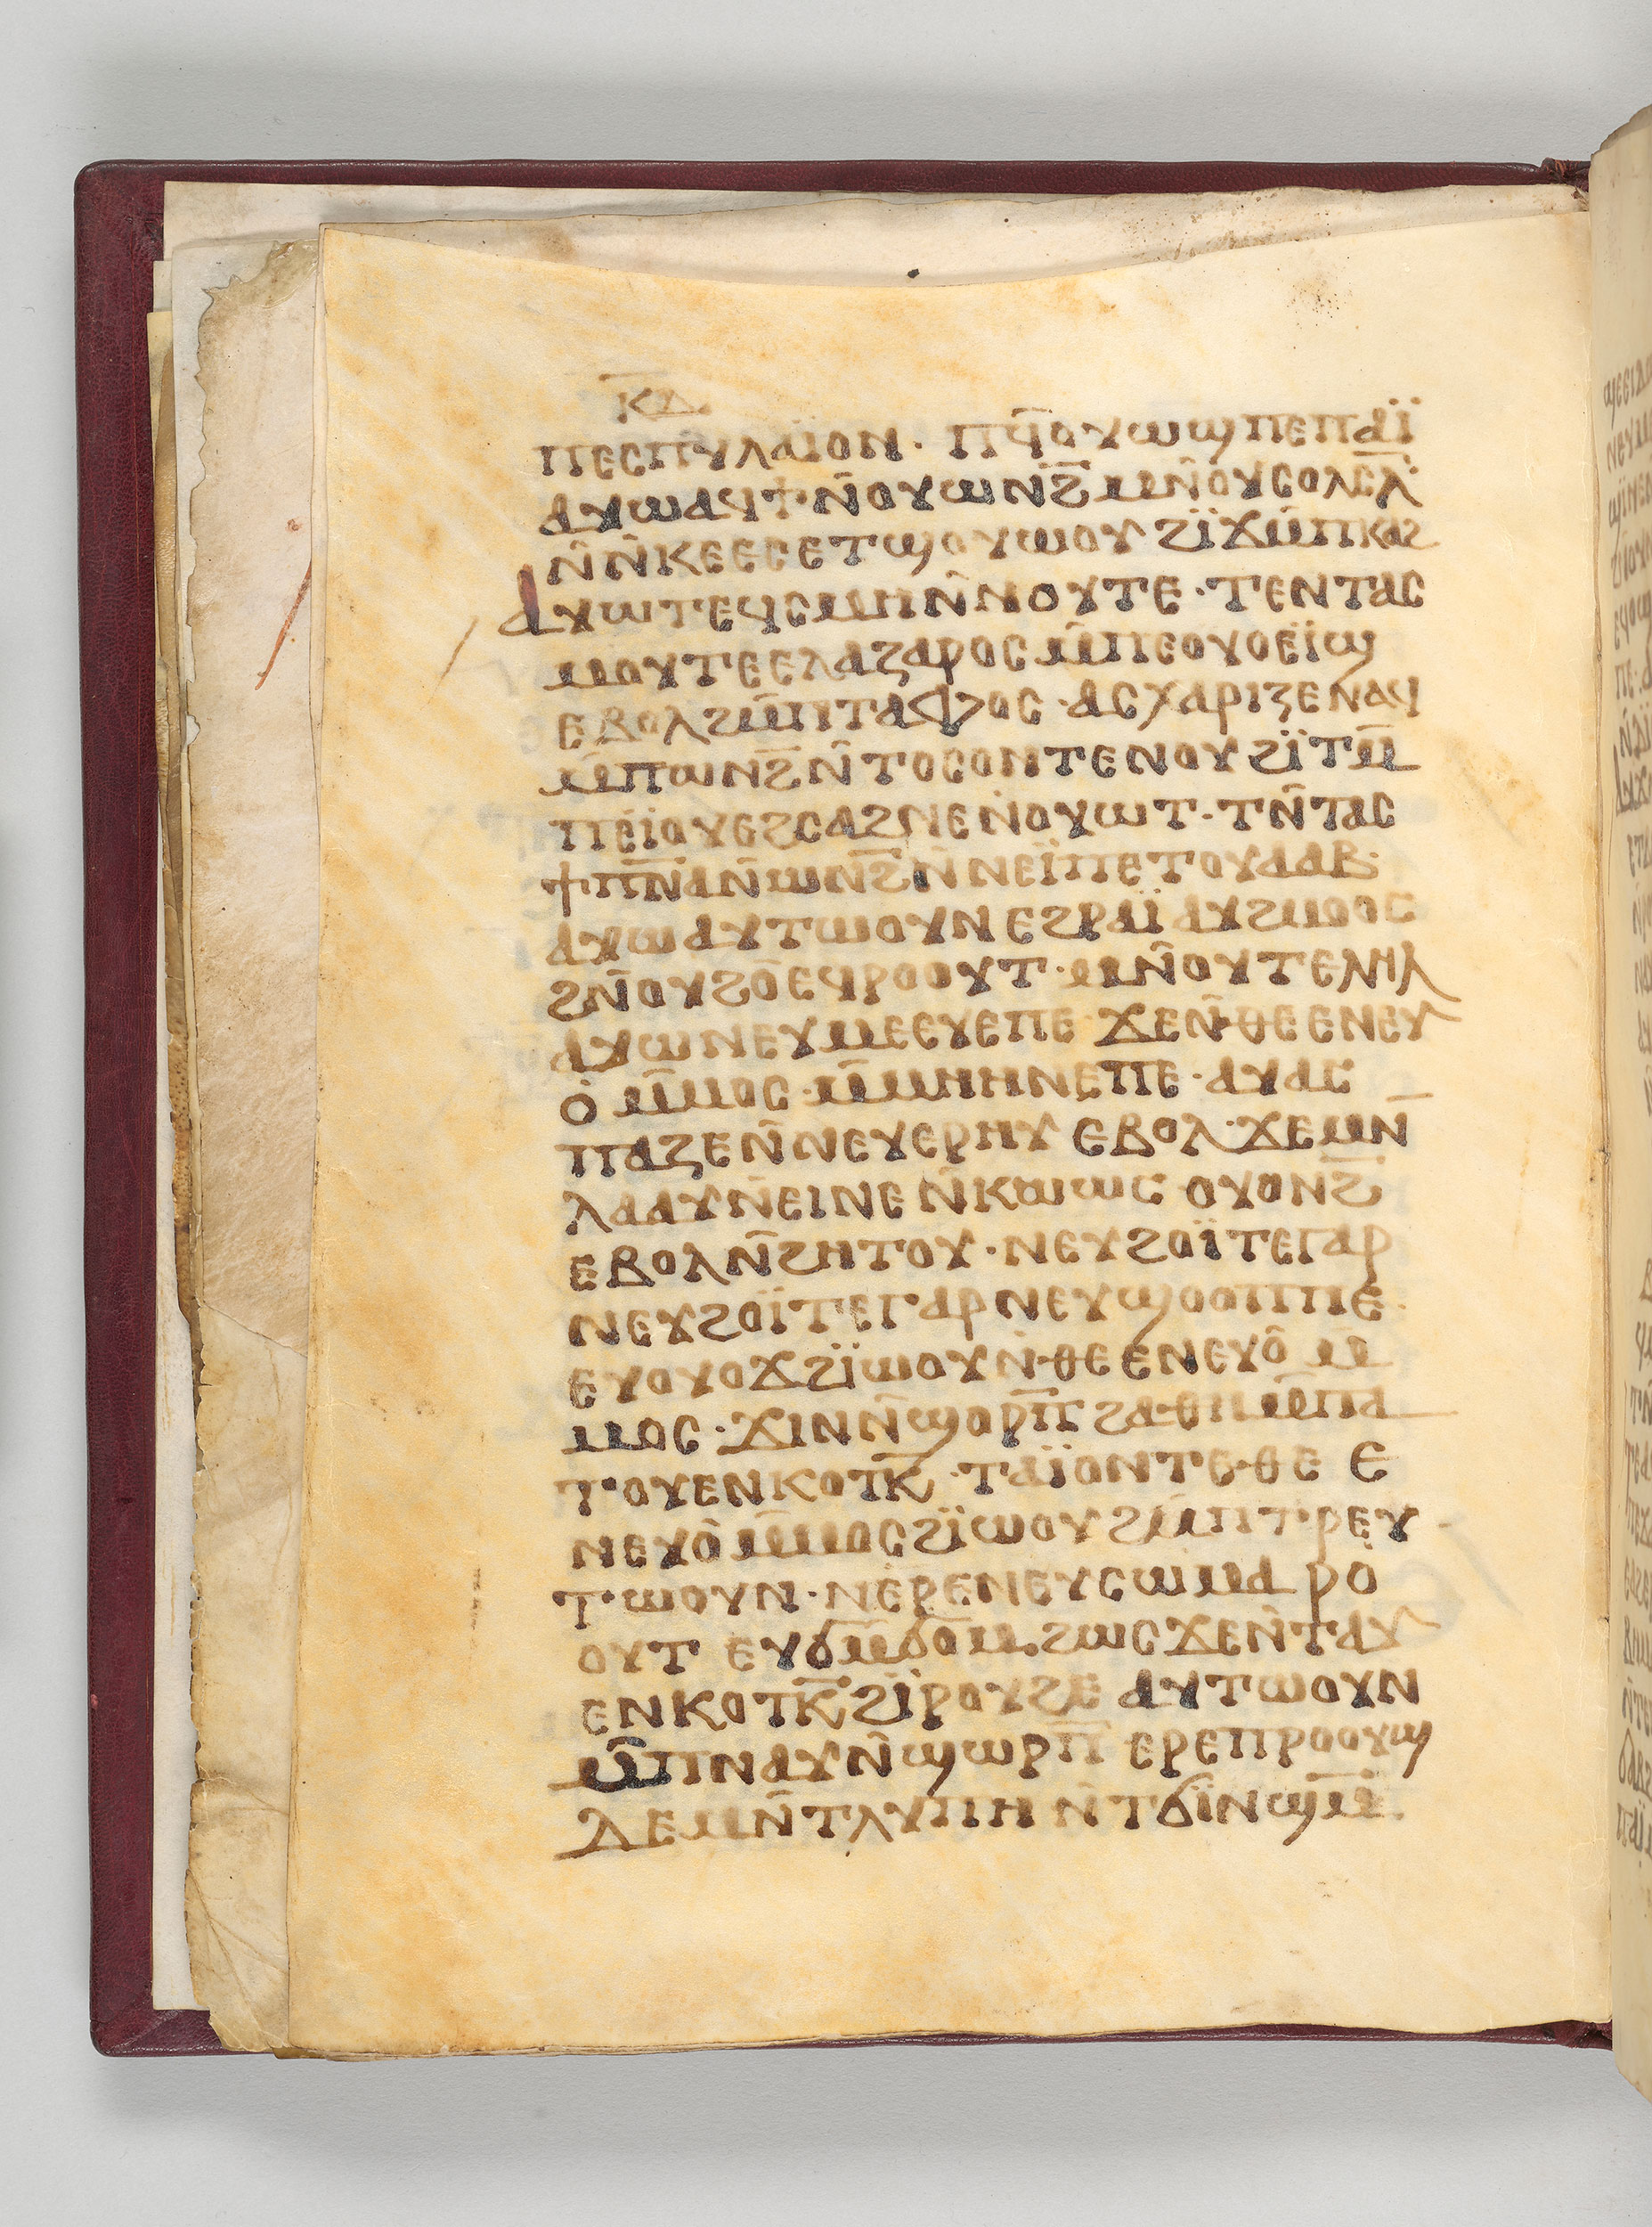 ⲕ̅ⲇ̅
ⲡⲉⲥⲡⲩⲗⲁⲓⲟⲛ · ⲡϥ̅ⲟⲩⲱϣⲡⲉⲡⲁⲓ̈
ⲁⲩⲱⲁϥϯⲛ̄ⲟⲩⲱⲛϩ̅ⲙⲛ̄ⲟⲩⲥⲟⲗⲥⲗ̅·
ⲛ̄ⲛ̄ⲕⲉⲉⲥⲉⲧϣⲟⲩⲱⲟⲩϩⲓ̈ϫⲙ̄ⲡⲕⲁϩ
ⲁⲩⲱⲧⲉϥⲥⲙⲏⲛ̄ⲛⲟⲩⲧⲉ · ⲧⲉⲛⲧⲁⲥ
ⲙⲟⲩⲧⲉⲉⲗⲁⲍⲁⲣⲟⲥⲙ̄ⲡⲉⲟⲩⲟⲉⲓ̈ϣ
ⲉⲃⲟⲗϩⲙ̄ⲡⲧⲁⲫⲟⲥ · ⲁⲥⲭⲁⲣⲓⲍⲉⲛⲁϥ
ⲙ̄ⲡⲱⲛϩ̅ⲛ̄ⲧⲟⲥⲟⲛⲧⲉⲛⲟⲩϩⲓ̈ⲧⲙ̅
ⲡⲉⲓ̈ⲟⲩⲉϩⲥⲁϩⲛⲉⲛ̇ⲟⲩⲱⲧ · ⲧⲛ̄ⲧⲁⲥ
ϯⲡⲛ̅ⲁⲛ̄ⲱⲛϩ̅ⲛ̄ⲛⲉⲓ̈ⲡⲉⲧⲟⲩⲁⲁⲃ·
ⲁⲩⲱⲁⲩⲧⲱⲟⲩⲛⲉϩⲣⲁⲓ̈ⲁⲩϩⲙⲟⲟⲥ
ϩⲛ̄ⲟⲩϩⲟ̄ⲉϥⲣⲟⲟⲩⲧ · ⲙⲛ̄ⲟⲩⲧⲉⲗⲏⲗ
ⲁⲩⲱⲛⲉⲩⲙⲉⲉⲩⲉⲡⲉ ϫⲉⲛ̄ⲑⲉⲉⲛⲉⲩ
ⲟ̇ ⲙ̄ⲙⲟⲥ · ⲙ̄ⲙⲏⲏⲛⲉⲡⲉ · ⲁⲩⲁⲥ
ⲡⲁⲍⲉⲛ̄ⲛⲉⲩⲉⲣⲏⲩ ⲉⲃⲟⲗ · ϫⲉⲙⲛ̄
ⲗⲁⲁⲩⲛ̄ⲉⲓⲛⲉⲛ̄ⲕⲱⲱⲥ ⲟⲩⲟⲛϩ̅
ⲉⲃⲟⲗⲛ̄ϩⲏⲧⲟⲩ · ⲛⲉⲩϩⲟⲓ̈ⲧⲉⲅⲁⲣ
ⲛⲉⲩϩⲟⲓ̈ⲧⲉⲅⲁⲣⲛⲉⲩϣⲟⲟⲡⲡⲉ·
ⲉⲩⲟⲩⲟϫϩⲓ̈ⲱⲟⲩⲛ̇ⲑⲉⲉⲛⲉⲩⲟ̄ ⲙ
ⲙⲟⲥ · ϫⲓⲛⲛ̄ϣⲟⲣⲡ̅ ϩⲁⲑⲏⲙ̄ⲡⲁ
ⲧⲟⲩⲉⲛⲕⲟⲧⲕ̅ · ⲧⲁⲓ̈ⲟⲛⲧⲉⲑⲉ ⲉ
ⲛⲉⲩⲟ̇ⲙ̄ⲙⲟⲥϩⲓ̈ⲱⲟⲩϩⲙ̄ⲡⲧⲣⲉⲩ
ⲧⲱⲟⲩⲛ · ⲛⲉⲣⲉⲛⲉⲩⲥⲱⲙⲁ ⲣⲟ
ⲟⲩⲧ ⲉⲩϭⲙ̅ϭⲟⲙ ϩⲱⲥϫⲉⲛ̄ⲧⲁⲩ
ⲉⲛⲕⲟⲧⲕ̅ϩⲓ̈ⲣⲟⲩϩⲉ ⲁⲩⲧⲱⲟⲩⲛ
ⲙ̄ⲡⲛⲁⲩⲛ̄ϣⲱⲣⲡ̅ ⲉⲣⲉⲡⲣⲟⲟⲩϣ
ⲇⲉⲙⲛ̄ⲧⲗⲩⲡⲏ ⲛ̄ⲧϭⲓ̈ⲛϣⲙ̅